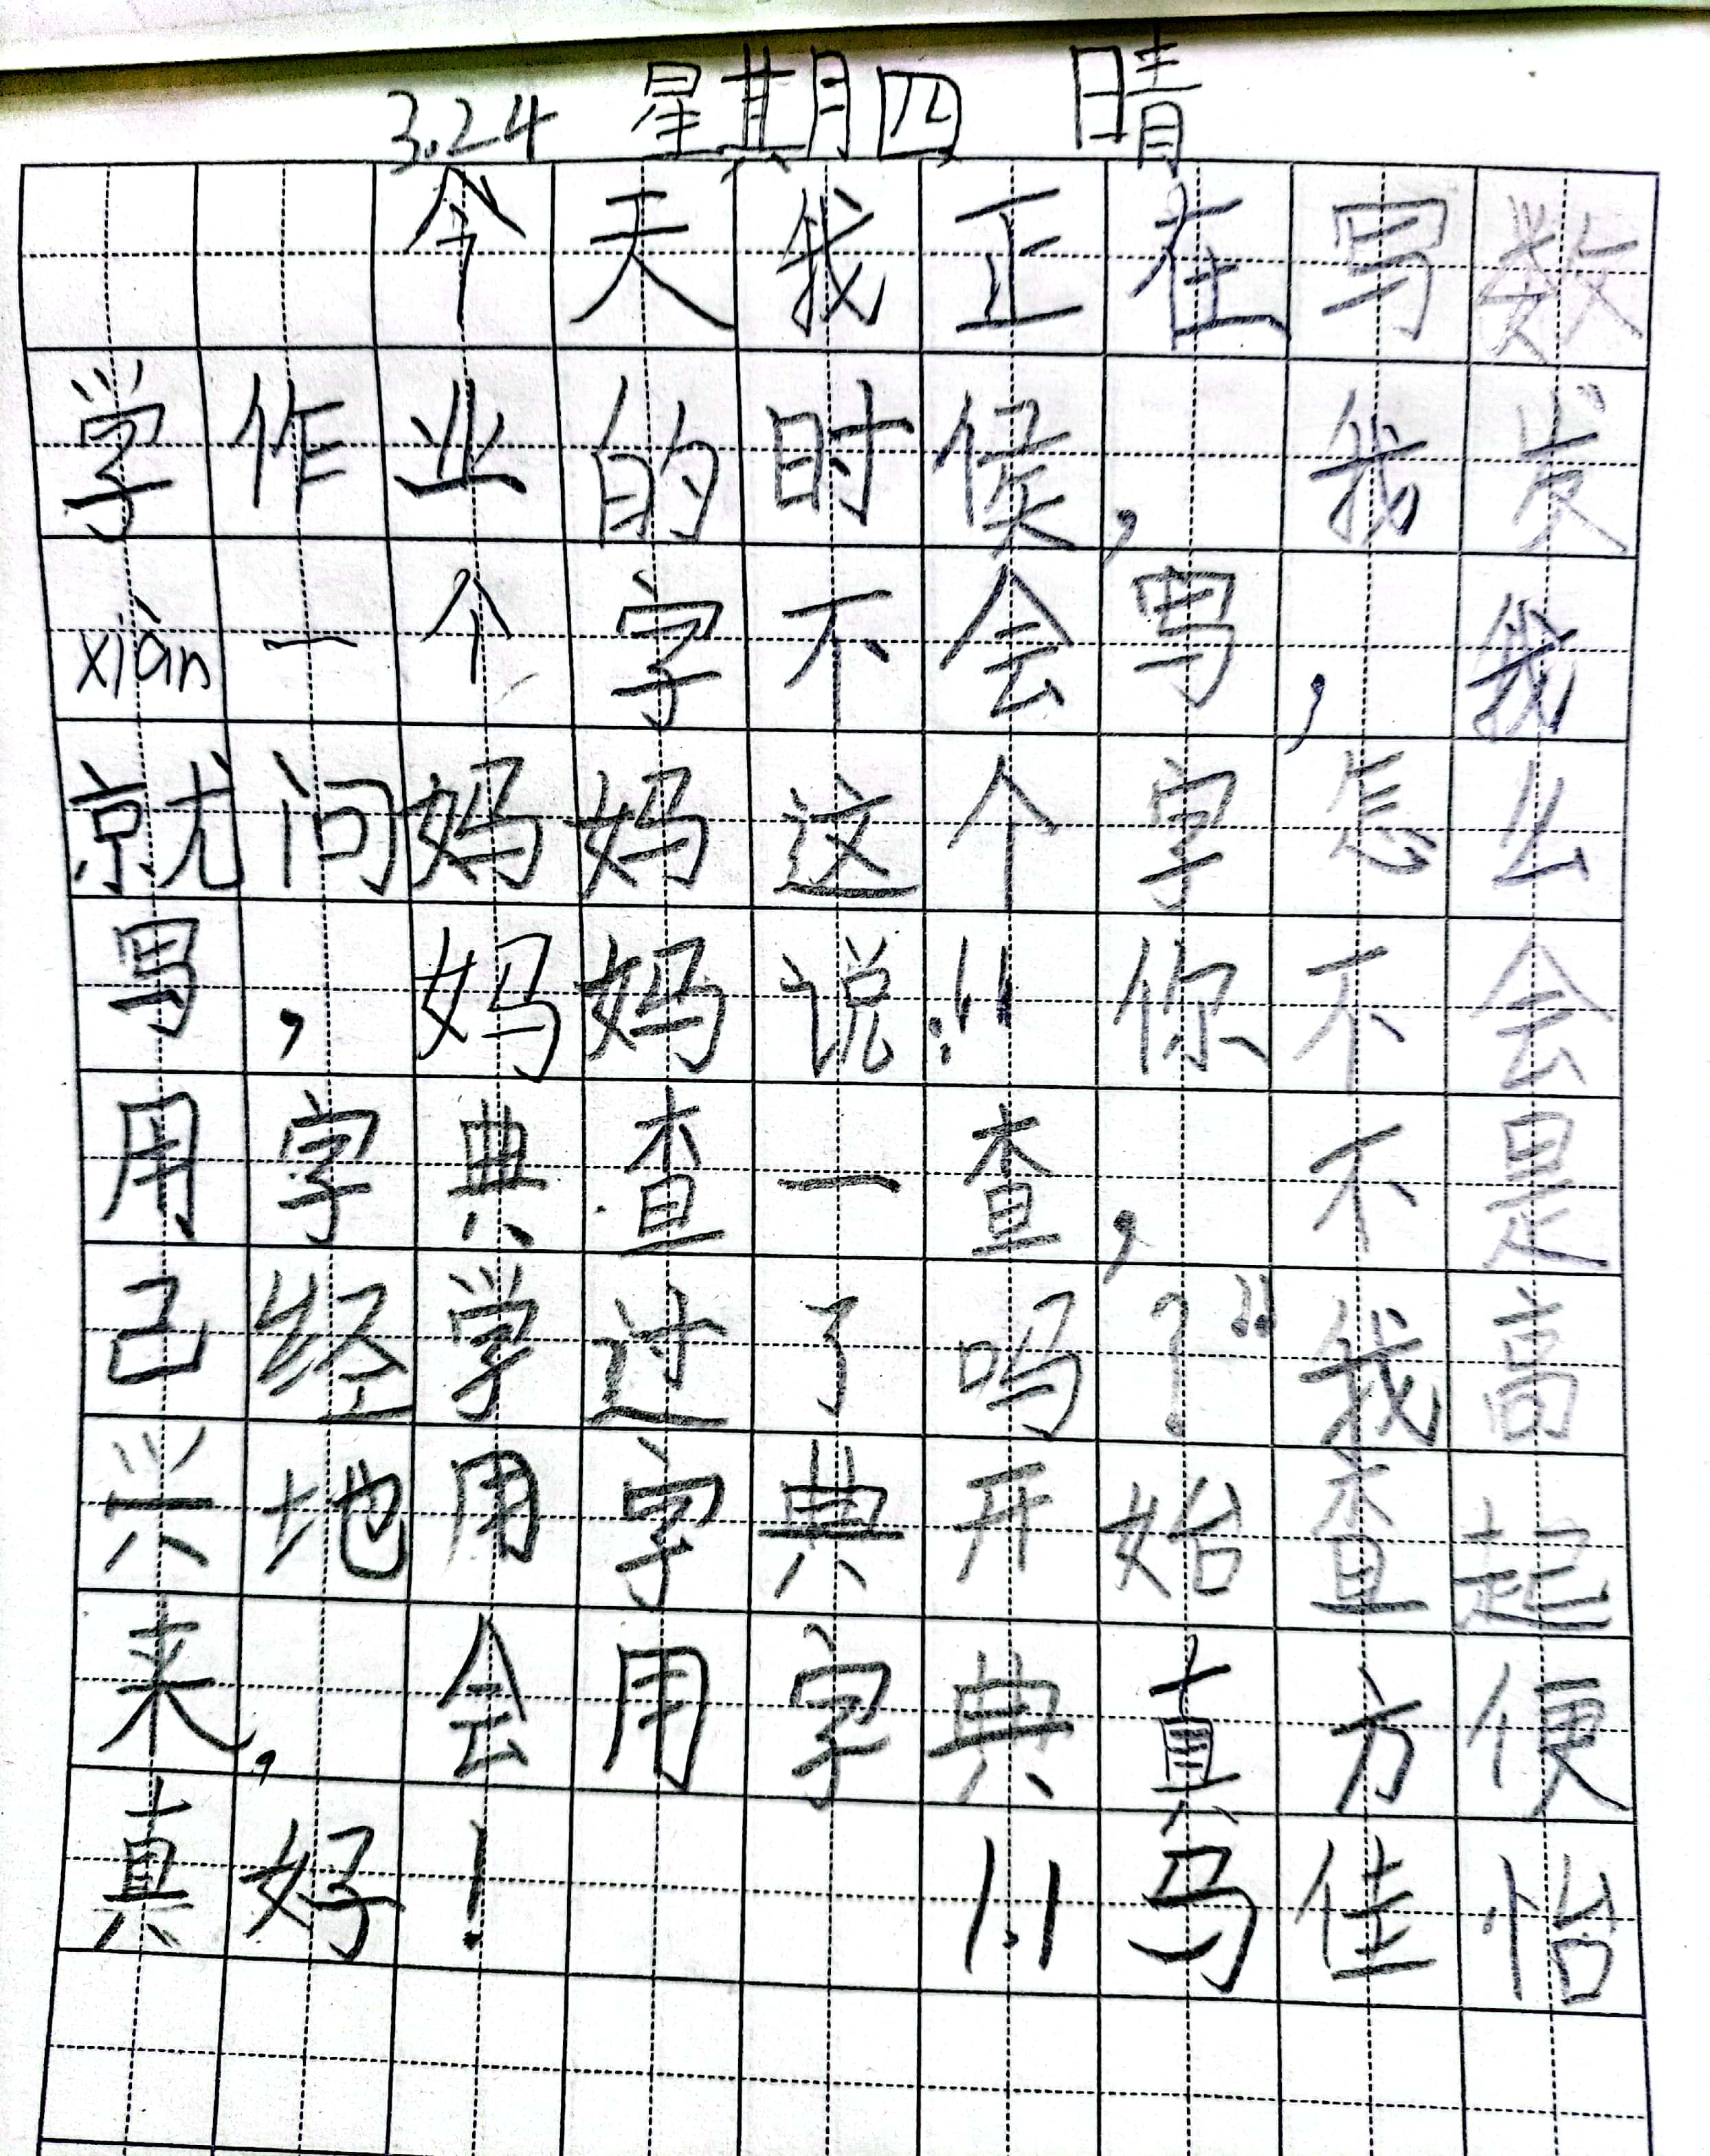 3.24 星期四 晴
今天我正在写数
学作业的时候，我发
xiàn一个字不会写，我
就问妈妈这个字怎么
写，妈妈说：“你不会
用字典查一查，不是
己经学过了吗？”我高
兴地用字典开始查起
来，会用字典真方便
真好！ 1.1马佳怡